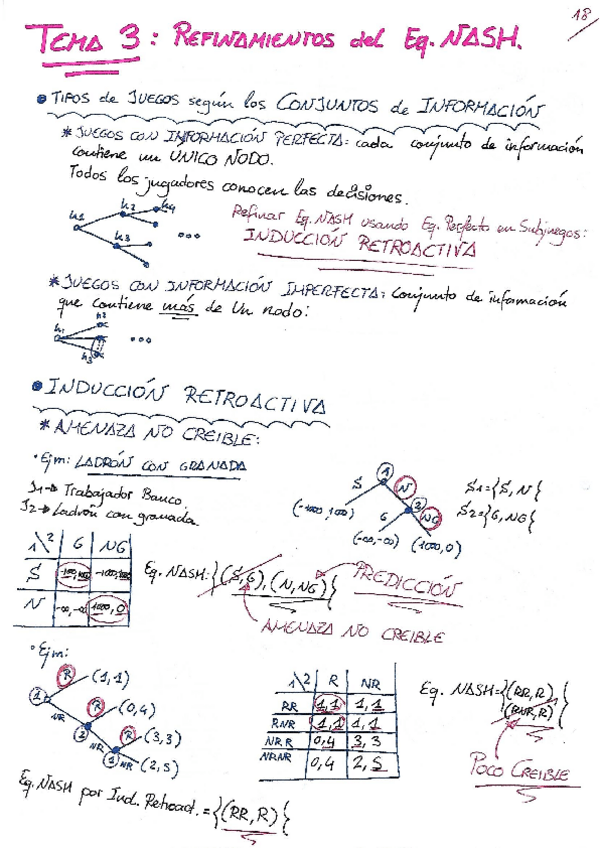 18
TEMA 3: REFINAMIENTOS del Eq. NASH.
• TIPOS de JUEGOS según los CONJUNTOS de INFORMACIÓN
* JUEGOS CON INFORMACIÓN PERFECTA: cada conjunto de información
contiene un ÚNICO NODO.
Todos los jugadores conocen las decisiones.
h1 h2 h4 h3 ...
Refinar Eq. NASH usando Eq. Perfecto en Subjuegos:
INDUCCIÓN RETROACTIVA
* JUEGOS CON INFORMACIÓN IMPERFECTA: Conjunto de información
que contiene más de Un nodo:
h1 h2 h3 ...
• INDUCCIÓN RETROACTIVA
* AMENAZA NO CREIBLE:
• Ejm: LADRÓN CON GRANADA
J1→ Trabajador Banco
J2→ Ladrón con granada
S 1 N
(-1000, 100) G 2 NG
(-∞,-∞) (1000,0)
S1={S,N}
S2={G,NG}
1\2 G NG
S
N -∞,-∞ 1000,0
Eq. NASH: {(S,G),(N,NG)}
PREDICCIÓN
AMENAZA NO CREIBLE
• Ejm:
R (1,1)
1 NR R (0,4)
2 NR R (3,3)
1 NR (2,5)
1\2 R NR
RR 1,1 1,1
RNR 1,1 1,1
NRR 0,4 3,3
NRNR 0,4 2,5
Eq. NASH={(RR,R)
(RNR,R)}
POCO CREIBLE
Eq. NASH por Ind. Retroact. = {(RR,R)}